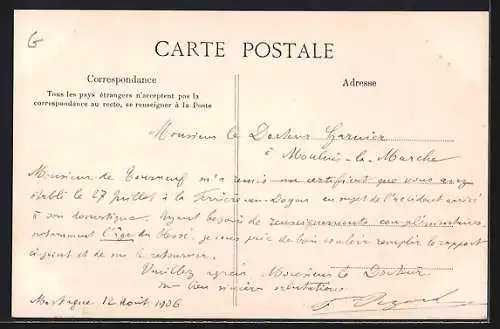 G
CARTE POSTALE
Correspondance
Adresse
Tous les pays étrangers n'acceptent pas la
correspondance au recto, se renseigner à la Poste
Monsieur le Docteur Garnier
à Moulins-la-Marche
Monsieur de m'a remis un certificat que vous avez
établi le 27 juillet à la Ferrière-au-Doyen au sujet de l'accident arrivé
à son domestique. Ayant besoin de renseignements complémentaires,
notamment l'âge du blessé, je vous prie de bien vouloir remplir le rapport
ci-joint et de me le retourner.
Veuillez agréer Monsieur le Docteur,
mes bien sincères salutations
Mortagne 12 août 1906